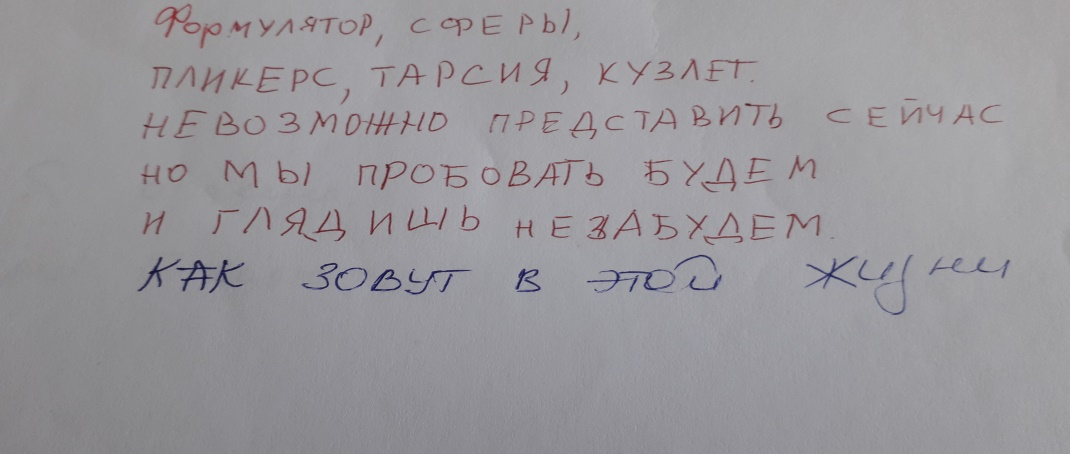 Формулятор, сферы,
пликерс, тарсия, кузлет.
невозможно представить сейчас
но мы пробовать будем
и глядишь незабудем.
как зовут в этой жизни